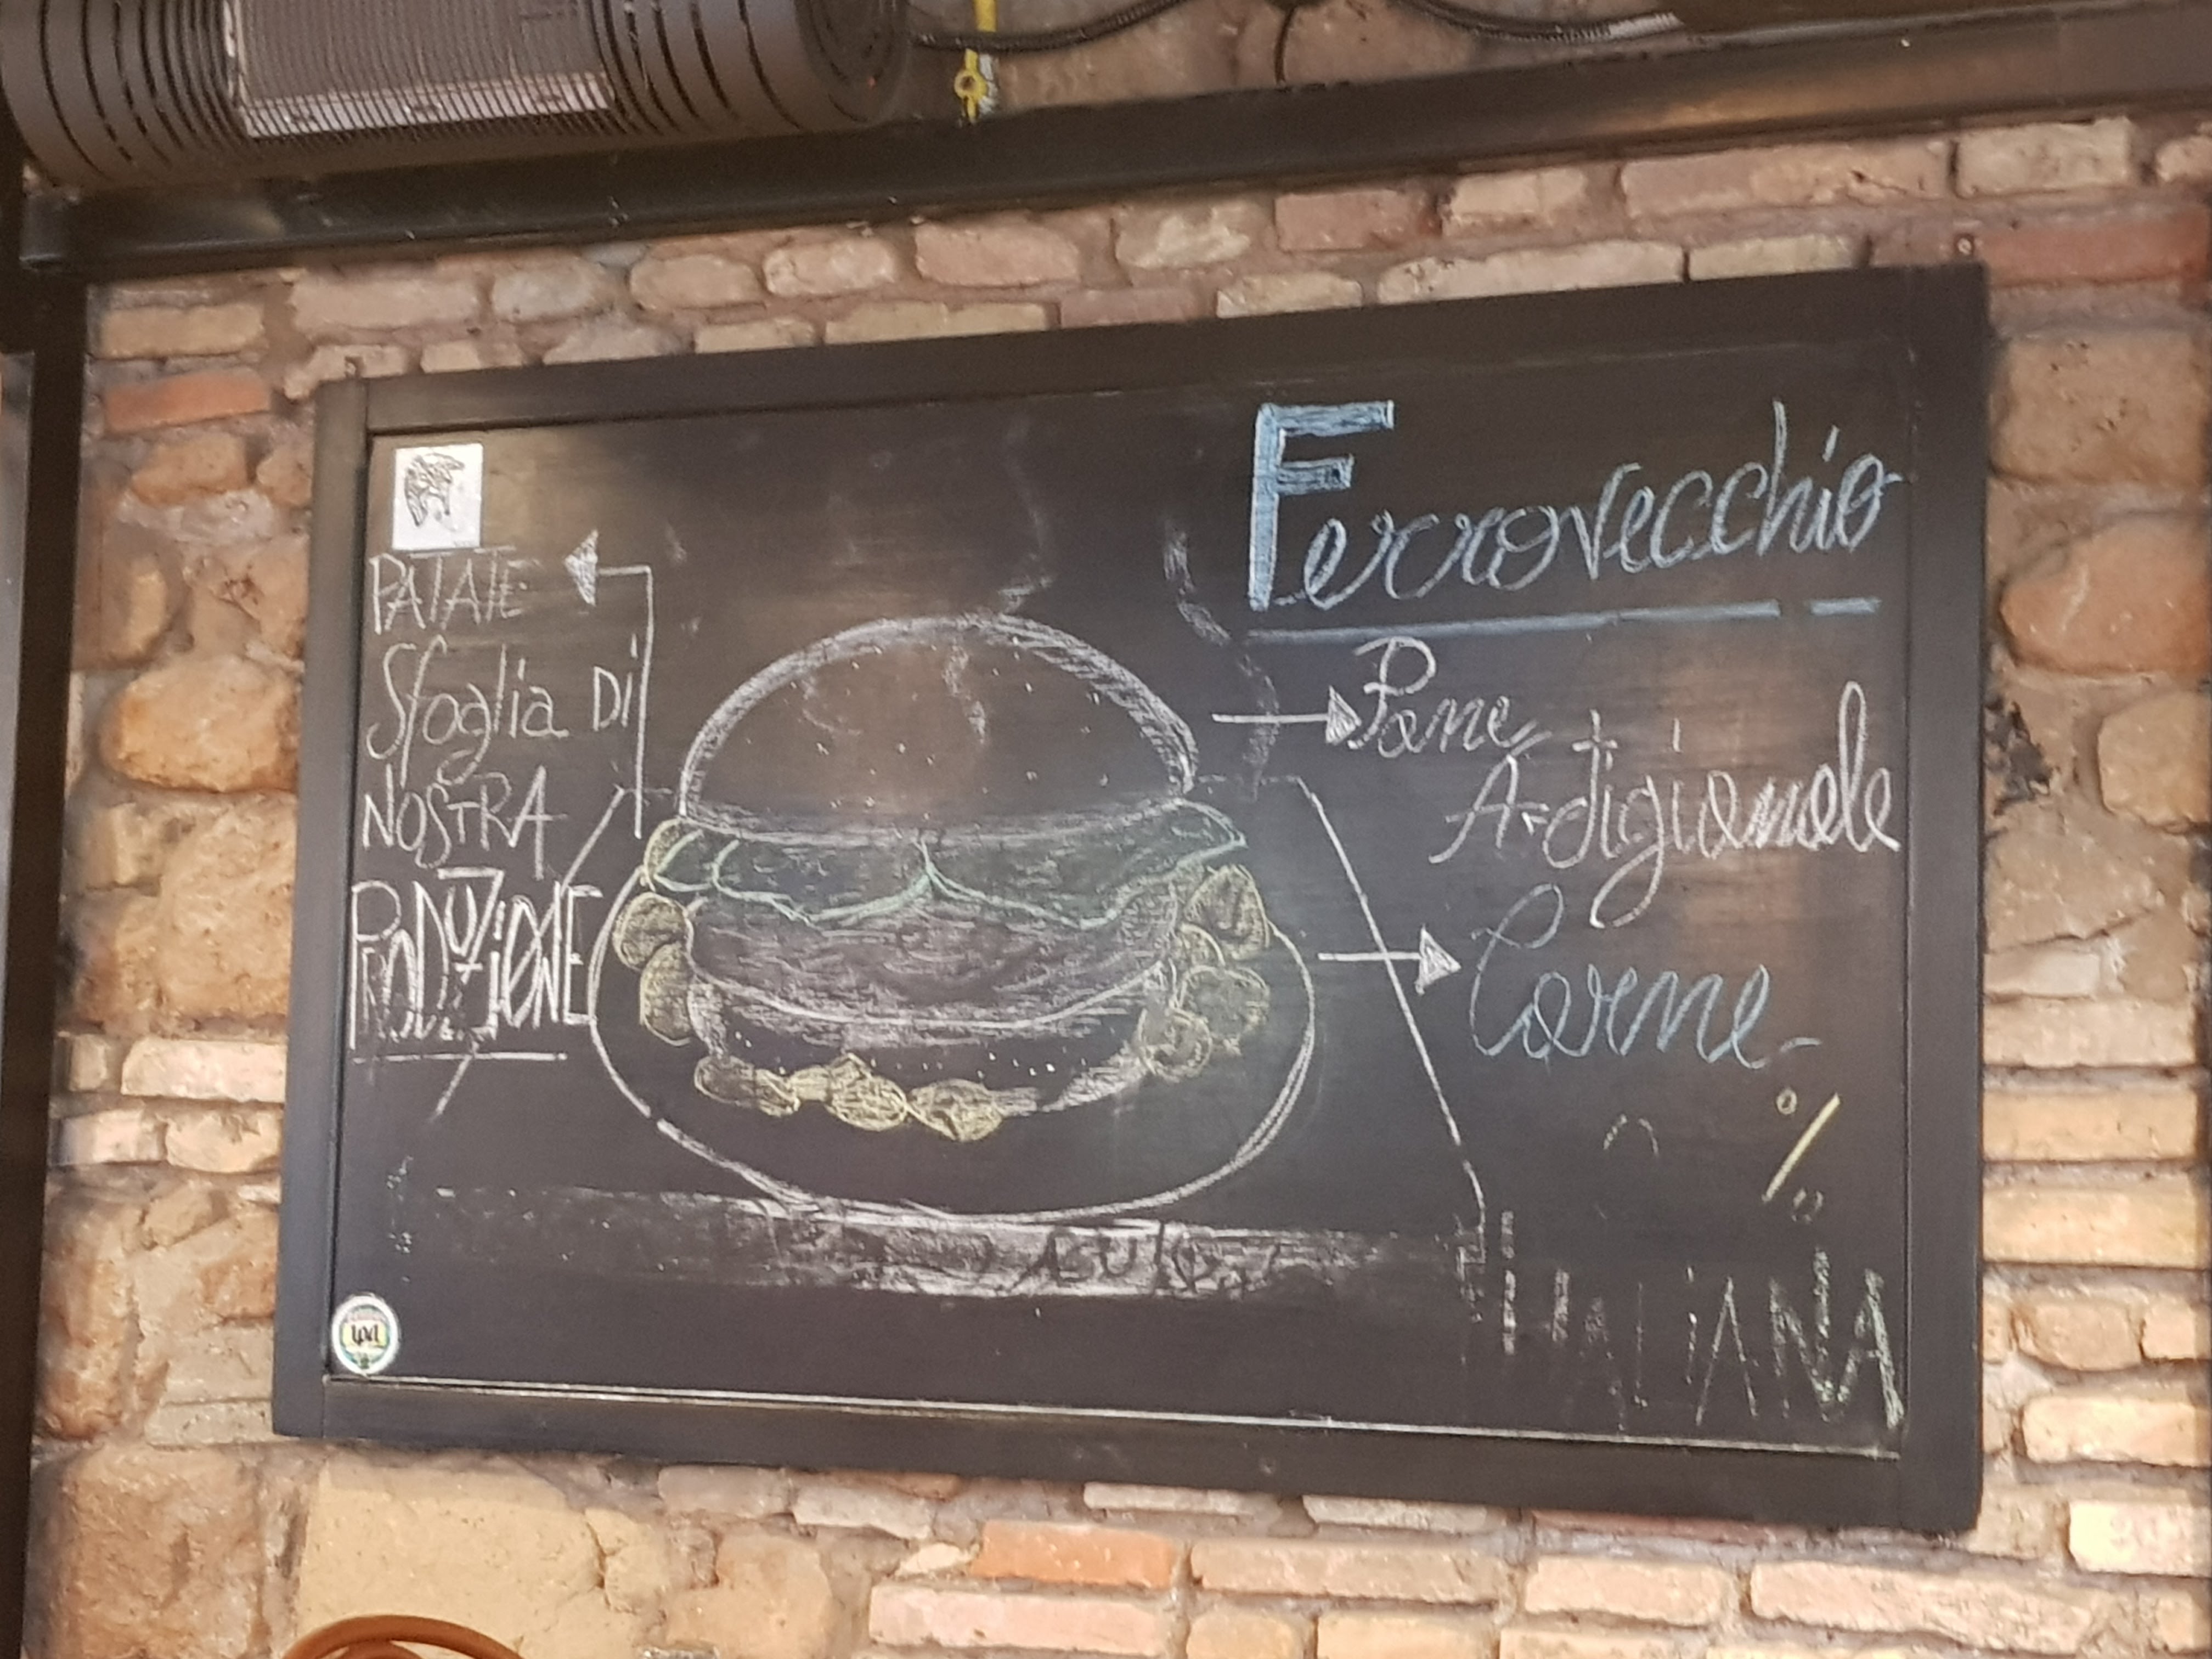 Ferrovecchio
PATATE
Sfoglia Di
NOSTRA
PRODUZIONE
Pane
Artigianale
Carne
%
ITALIANA